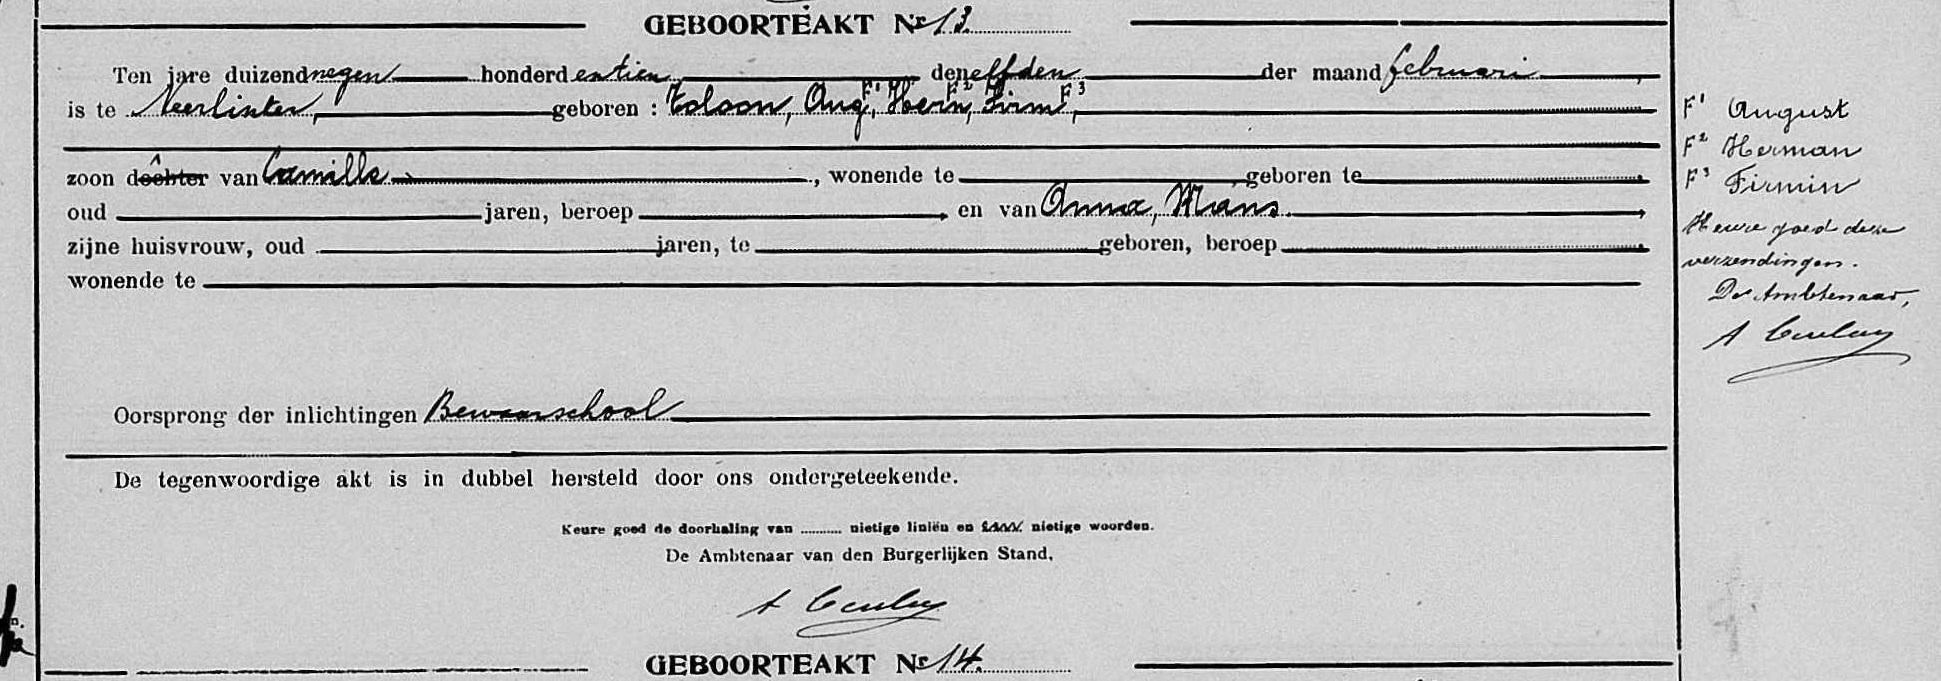 GEBOORTEAKT Nr 13.
Ten jare duizend negen honderd en tien den elfden der maand februari
is te Neerlinter, geboren : Tolson, Aug F1, Herm F2, Firm F3,
zoon dochter van Camille, wonende te geboren te
oud jaren, beroep, en van Anna, Mans
zijne huisvrouw, oud jaren, te geboren, beroep
wonende te
Oorsprong der inlichtingen Bewaarschool
De tegenwoordige akt is in dubbel hersteld door ons ondergeteekende.
Keure goed de doorhaling van .......... nietige liniën en nietige woorden.
De Ambtenaar van den Burgerlijken Stand,
GEBOORTEAKT Nr 14.
F1 August
F2 Herman
F3 Firmin
Keure goed deze
verzendingen.
De Ambtenaar,